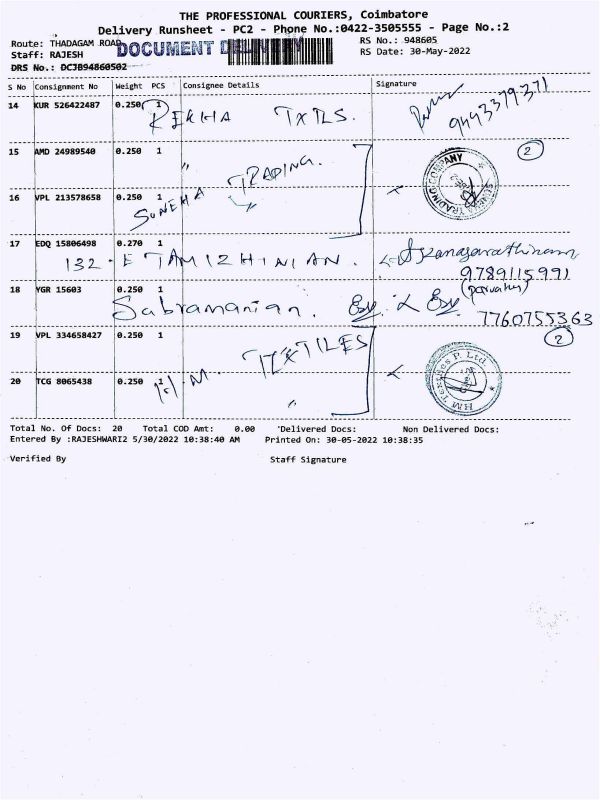 THE PROFESSIONAL COURIERS, Coimbatore
Delivery Runsheet - PC2 - Phone No.:0422-3505555 - Page No.:2
Route: THADAGAM ROAD DOCUMENT DELIVERY RS No.: 948605
Staff: RAJESH RS Date: 30-May-2022
DRS No.: DCJB94860502
S No Consignment No Weight PCS Consignee Details Signature
14 KUR 526422487 0.250 1 REKHA TXTLS. 9443379371
15 AMD 24989540 0.250 1 〃 TRADING. 2
16 VPL 213578658 0.250 1 SUNEHA 〃 TRADING COMPANY
17 EDQ 15806498 0.270 1
132 - E TAMIZHINIAN. Skanagarathinam
9789115991
18 YGR 15603 0.250 1 (parvathy)
Subramanian. 7760755363
19 VPL 334658427 0.250 1 TEXTILES 2
20 TCG 8065438 0.250 1 H M 〃 HM Textiles P. Ltd.
Total No. Of Docs: 20 Total COD Amt: 0.00 'Delivered Docs: Non Delivered Docs:
Entered By :RAJESHWARI2 5/30/2022 10:38:40 AM Printed On: 30-05-2022 10:38:35
Verified By Staff Signature